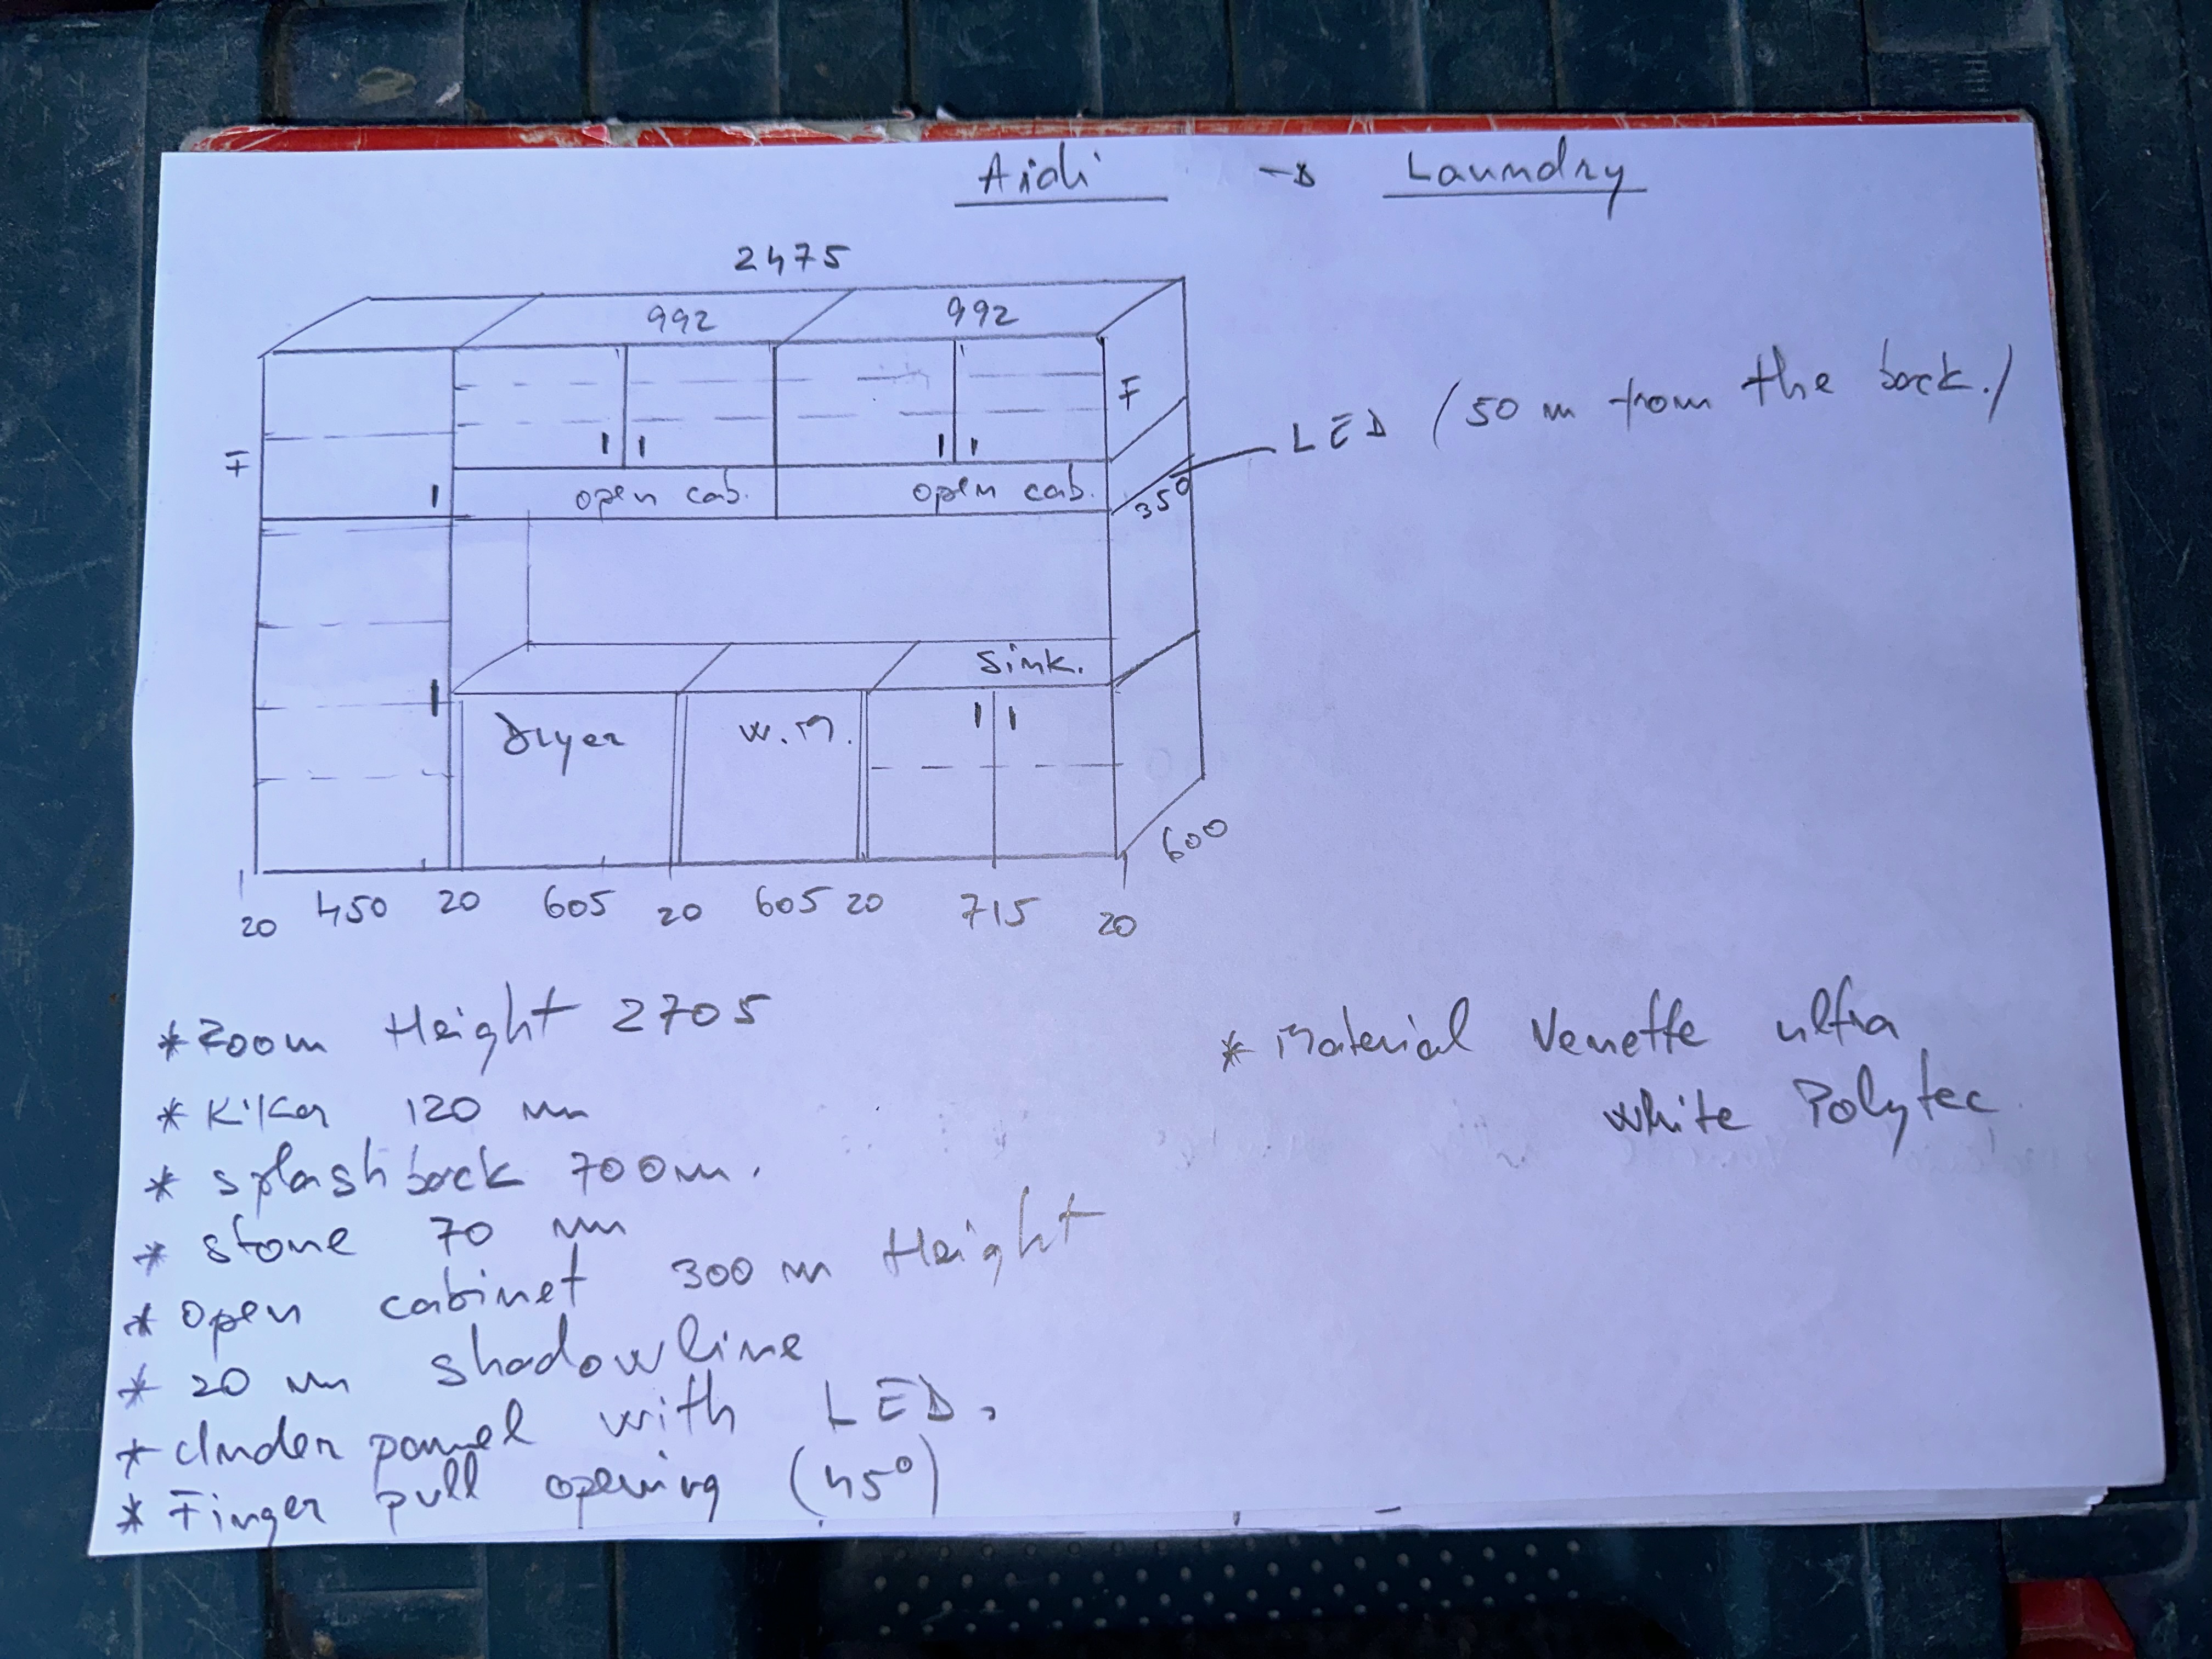 Aidi → Laundry
2475
992 992
F
F
LED (50 m from the back.)
open cab. open cab.
350
Sink.
Dryer W.M.
600
20 450 20 605 20 605 20 715 20
* Room Height 2705
* Kiker 120 mm
* splashback 700 mm.
* stone 70 mm
* open cabinet 300 m Height
* 20 mm shadowline
* Under pannel with LED.
* Finger pull opening (45°)
* Material Venette ultra
white Polytec